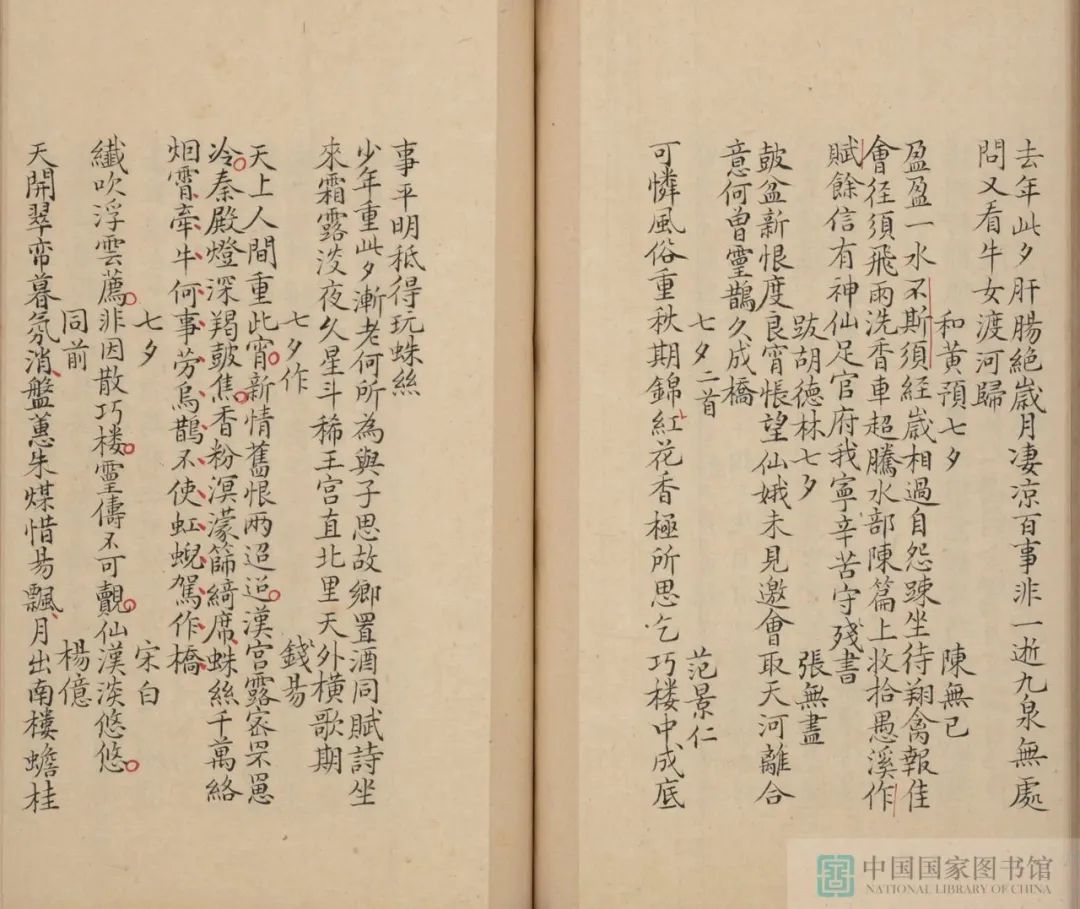 去年此夕肝腸絕歲月凄凉百事非一逝九泉無處
問又看牛女渡河歸
和黃預七夕 陳無已
盈盈一水不斯須經歲相過自怨踈坐待翔禽報佳
會径須飛雨洗香車超騰水部陳篇上收拾愚溪作
賦餘信有神仙足官府我寧辛苦守殘書
跋胡德林七夕 張無盡
皷盆新恨度良宵悵望仙娥未見邀會取天河離合
意何曾靈鵲久成橋
七夕二首 范景仁
可憐風俗重秋期錦紅花香極所思乞巧楼中成底
事平明秪得玩蛛絲
少年重此夕漸老何所為與子思故鄉置酒同賦詩坐
來霜露茇夜久星斗稀王宫直北里天外横歌期
七夕作 錢昜
天上人間重此宵新情舊恨两迢迢漢宫露宻罘罳
冷秦殿燈深羯皷焦香粉溟濛篩綺席蛛絲千萬絡
烟霄牽牛何事劳烏鵲不使虹蜺駕作橋
七夕 宋白
纎吹浮雲薦非因散巧楼靈儔不可覿仙漢淡悠悠
同前 楊億
天開翠帟暮氛消盤蕙朱煤惜昜飄月出南樓蟾桂
中国国家图书馆
NATIONAL LIBRARY OF CHINA